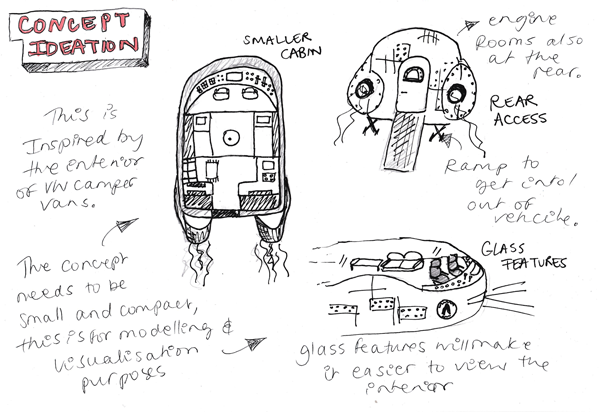 CONCEPT
IDEATION
SMALLER
CABIN
engine
Rooms also
at the
rear.
REAR
ACCESS
This is
Inspired by
the enterior
of VW camper
vans.
Ramp to
get into/
out of
vehcile.
The concept
needs to be
small and compact,
this is for modelling &
visualisation
purposes
GLASS
FEATURES
glass features will make
it easier to view the
interior